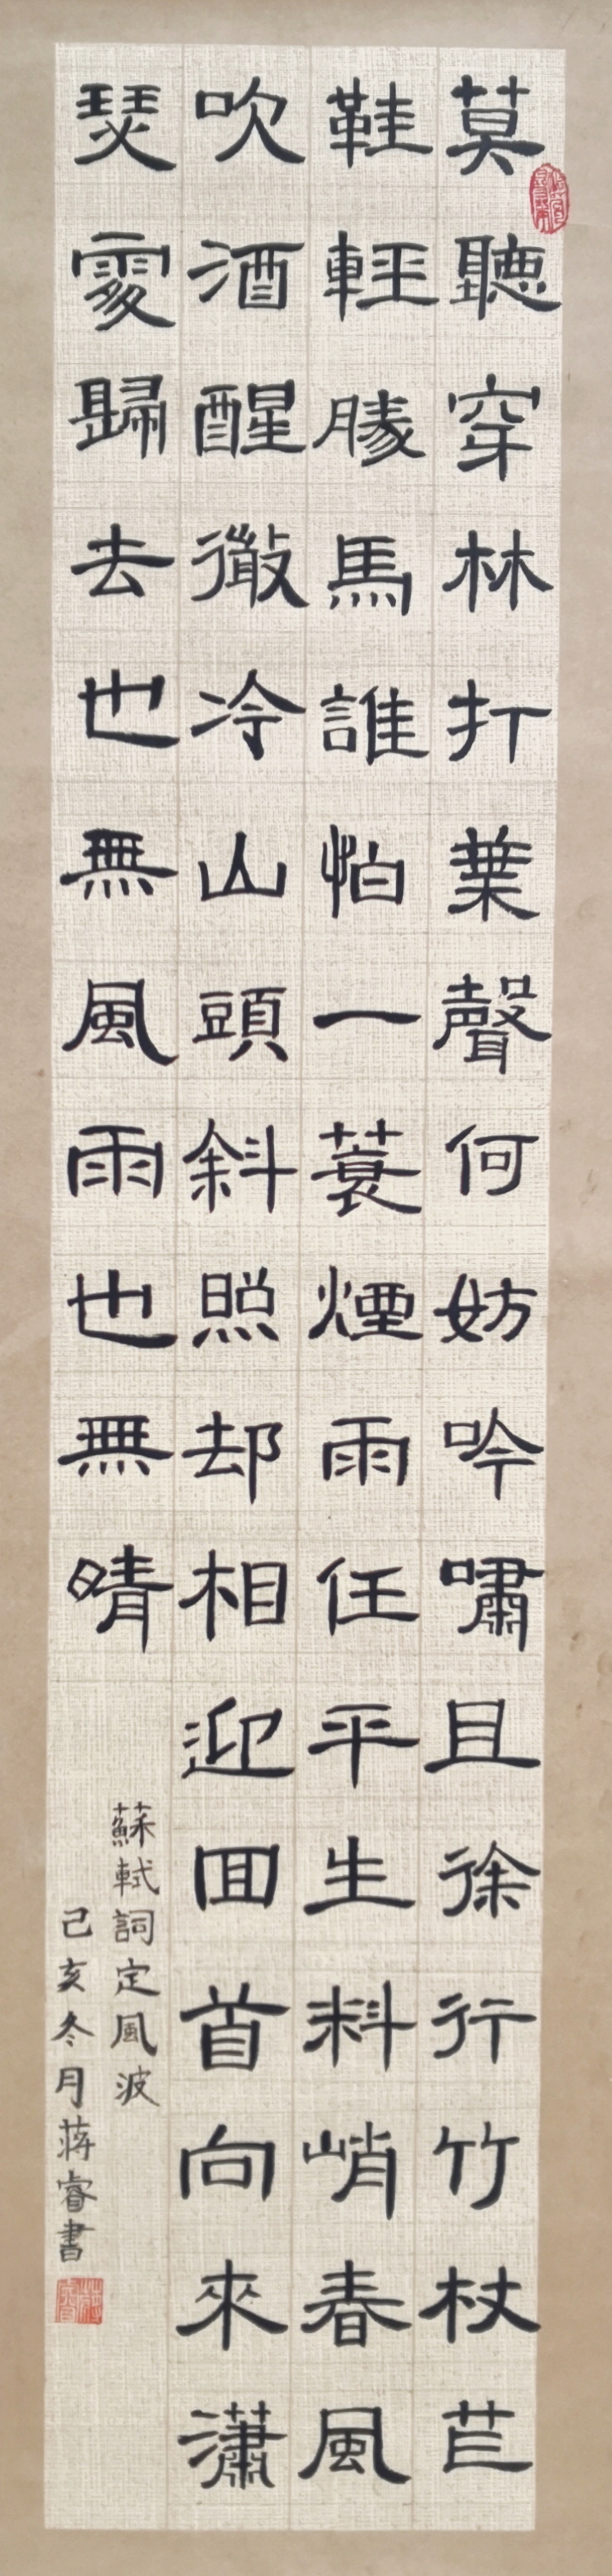 莫聽穿林打葉聲何妨吟嘯且徐行竹杖芒
鞋輕勝馬誰怕一蓑煙雨任平生料峭春風
吹酒醒微冷山頭斜照却相迎回首向來瀟
瑟處歸去也無風雨也無晴
蘇軾詞定風波
己亥冬月蔣睿書